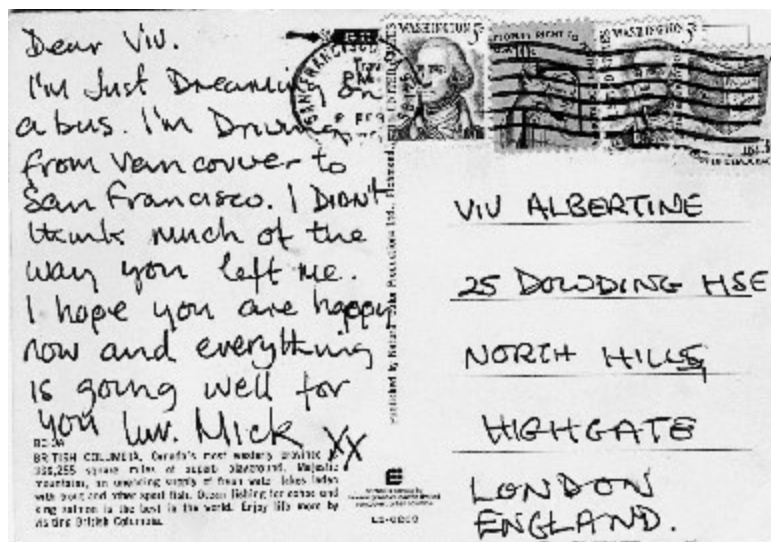 Dear Viv.
I'm Just Dreaming on
a bus. I'm Driving
from Vancouver to
San Francisco. I Didn't
think much of the
way you left me.
I hope you are happy
now and everything
is going well for
you luv. Mick XX
BRITISH COLUMBIA, Canada's most westerly province
366,255 square miles of superb playground. Majestic
mountains, an unending supply of fresh water lakes laden
with trout and other sport fish. Ocean fishing for cohoe and
king salmon is the best in the world. Enjoy life more by
visiting British Columbia.
SAN FRANCISCO
WASHINGTON 5c
WASHINGTON 5c
Published by Natural Color Productions Ltd., Richmond
VIV ALBERTINE
25 DOWDING HSE
NORTH HILL
HIGHGATE
LONDON
ENGLAND.